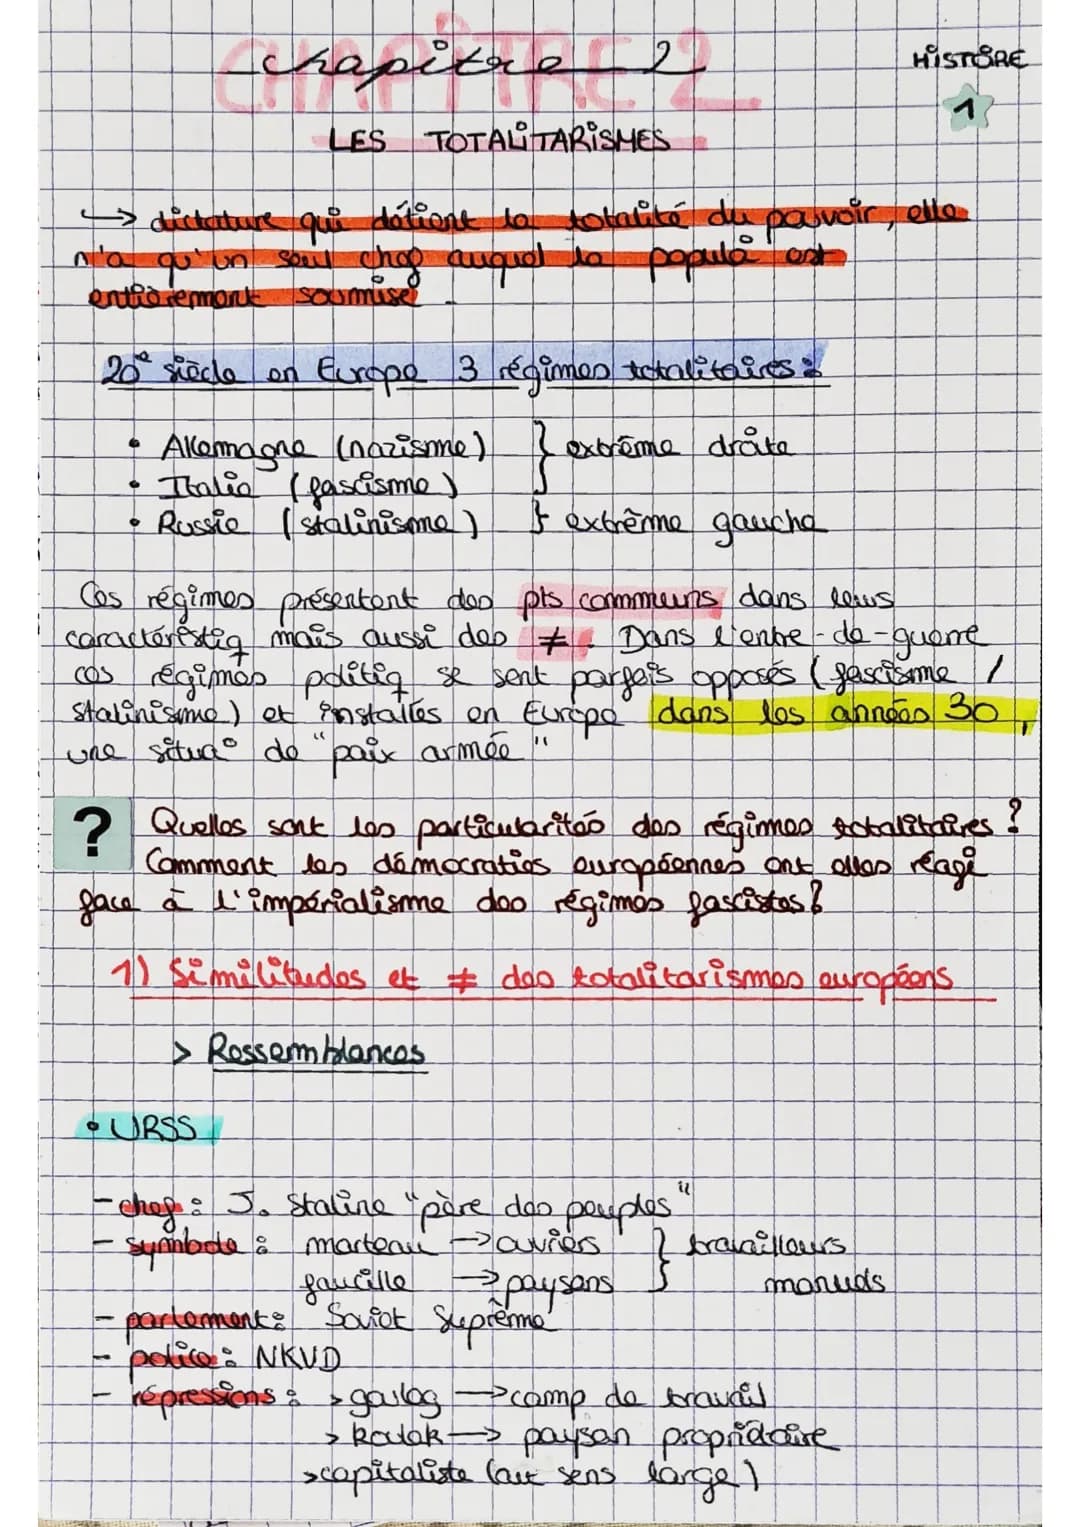 CHAPITRE 2
chapitre 2
HISTOIRE
1
LES TOTALITARISMES
→ dictature qui détient la totalité du pouvoir, elle
n'a qu'un seul chef auquel la populå est
entièrement soumise.
20e siècle en Europe 3 régimes totalitaires :
• Allemagne (nazisme) } extrême droite
• Italie (fascisme)
• Russie (stalinisme) } extrême gauche
Ces régimes présentent des pts communs dans leurs
caractéristiq mais aussi des ≠. Dans l'entre-de-guerre
ces régimes politiq se sent parfois opposés (fascisme /
stalinisme) et installés en Europe dans les années 30,
une situa° de "paix armée"
? Quelles sont les particularités des régimes totalitaires ?
Comment les démocraties européennes ont elles réagi
face à l'impérialisme des régimes fascistes ?
1) Similitudes et ≠ des totalitarismes européens
> Ressemblances
• URSS
- chef : J. Staline "père des peuples"
- symbole : marteau → ouviers } travailleurs
faucille → paysans } manuels
- parlement : Soviet Suprême
- police : NKVD
- répressions : > goulag → camp de travail
> koulak → paysan propriétaire
> capitaliste (au sens large)